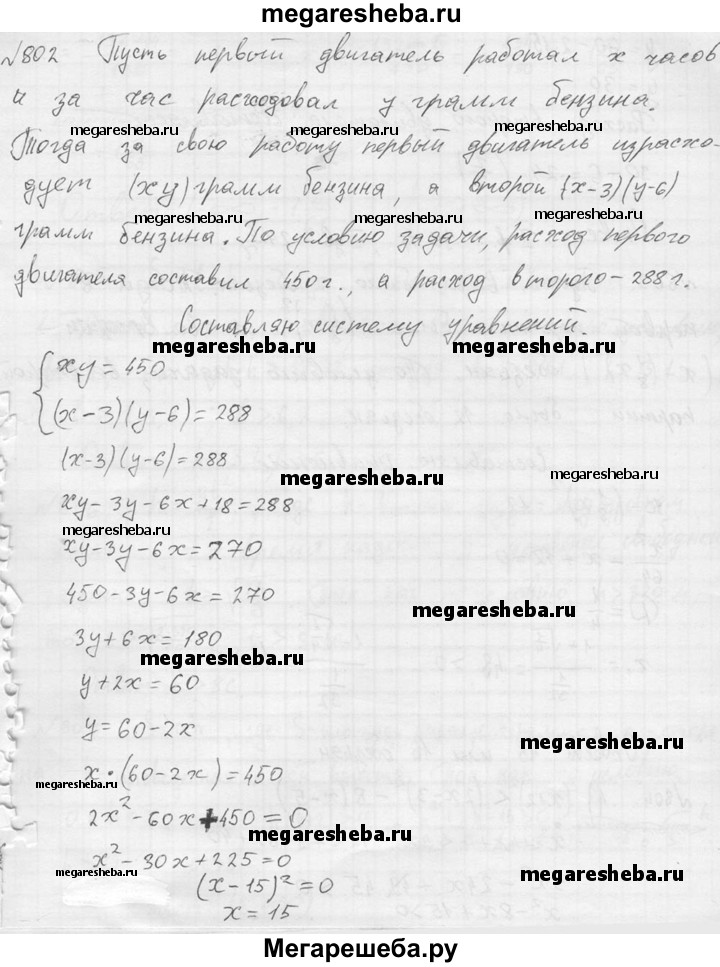 megaresheba.ru
№802 Пусть первый двигатель работал x часов
и за час расходовал y грамм бензина.
megaresheba.ru megaresheba.ru
Тогда за свою работу первый двигатель израсхо-
дует (xy) грамм бензина, а второй (x-3)(y-6)
megaresheba.ru megaresheba.ru
грамм бензина. По условию задачи, расход первого
двигателя составил 450г., а расход второго - 288 г.
Составляю систему уравнений.
megaresheba.ru megaresheba.ru
{ xy = 450
(x-3)(y-6) = 288
(x-3)(y-6) = 288
megaresheba.ru megaresheba.ru
xy - 3y - 6x + 18 = 288
megaresheba.ru
xy - 3y - 6x = 270
450 - 3y - 6x = 270
megaresheba.ru
3y + 6x = 180
megaresheba.ru
y + 2x = 60
y = 60 - 2x
megaresheba.ru
x · (60 - 2x) = 450
megaresheba.ru
2x² - 60x + 450 = 0
megaresheba.ru
x² - 30x + 225 = 0
megaresheba.ru megaresheba.ru
(x - 15)² = 0
x = 15
Мегарешеба.ру